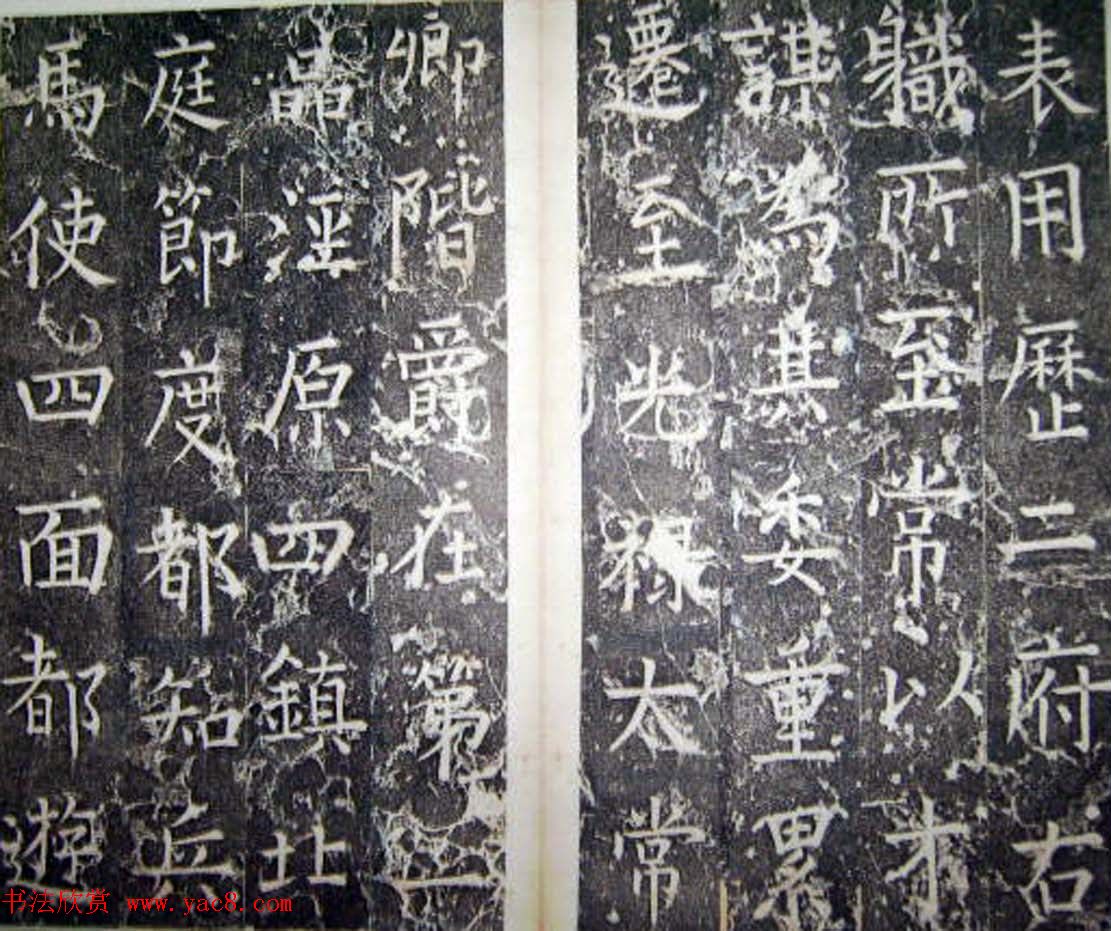 表用歷二府右
職所至常以才
謀為其委重累
遷至光祿太常
卿階爵在第一
品涇原四鎮北
庭節度都知兵
馬使四面都遊
书法欣赏 www.yac8.com